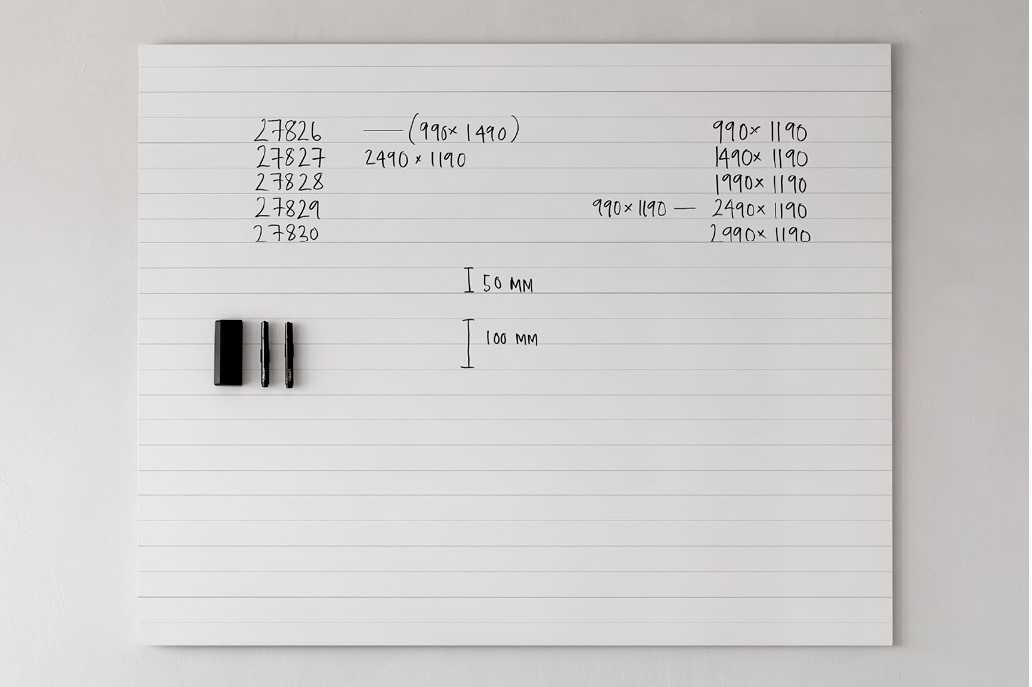 27826 — (990× 1490) 990× 1190
27827 2490 × 1190 1490× 1190
27828 1990× 1190
27829 990×1190 — 2490× 1190
27830 2990× 1190
50 MM
100 MM